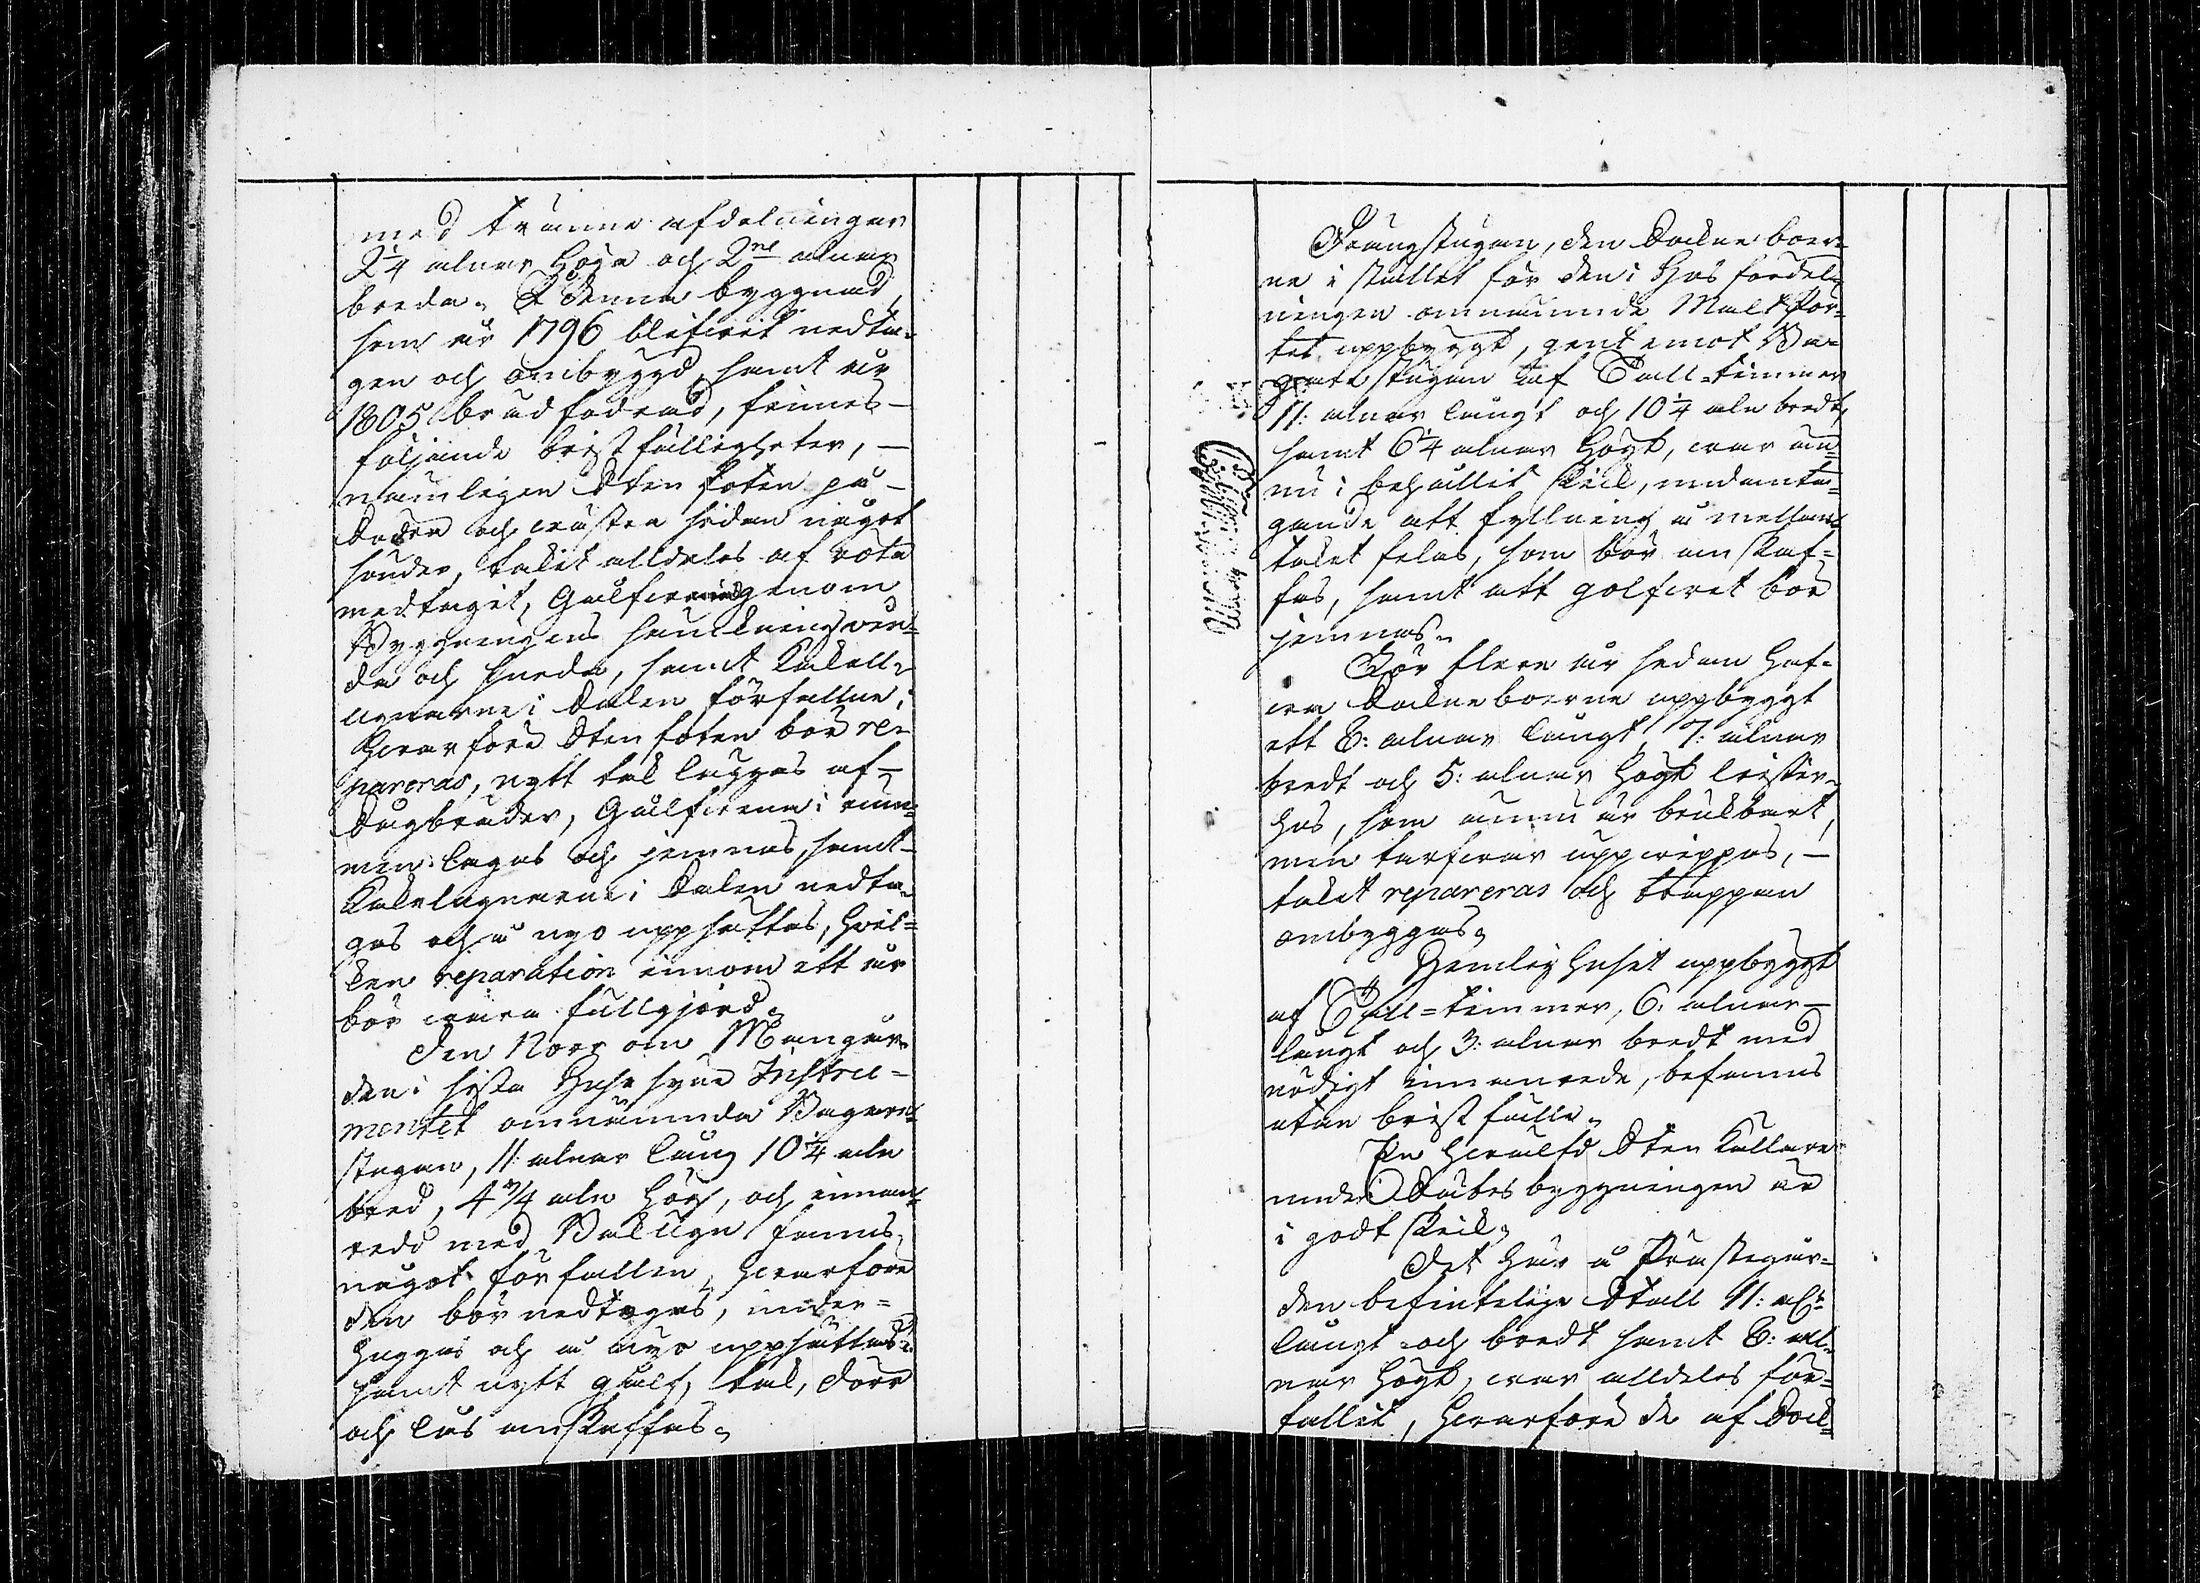 med tvänne afdelningar
2 1/4 alnar höga och 2ne alnar
breda. I denna byggnad,
som år 1796 blifvit nedta-
gen och ombyggd, samt år
1805 brädfodrad, finnes
följande bristfälligheter,
nämligen Sten foten på
Södra och västra sidan något
sönder, taket alldeles af röta
medtaget, Gålfven genom
Byggningens sänkning vin-
da och sneda, samt Kakell-
ugnarne i Salen förfallne;
Hvarföre Sten foten bör re-
pareras, nytt tak lägges af
Sågbräder, Gålfvena i rum-
men lagas och jemnas, samt
Kakelugnarne i Salen nedta-
gas och å nyo uppsättas, hvil-
ken reparation innom ett år
bör vara fullgjord.
Den Norr om Mangår-
den i sista Huse syns Instru-
mentet omnämnda Bagare-
stugan, 11 alnar lång 10 1/4 aln
bred, 4 3/4 aln hög, och innan-
rede med Bakugn fanns
något förfallen, hvarföre
den bör nedtagas, under-
huggas och å nyo uppsättas
samt nytt gålf, tak, dörr
och lås anskaffas.
Drängstugan, den Sockne boer-
ne i stället för den i Hus fördel-
ningen omnämnde Malt Por-
tet uppbyggt, gent emot Ba-
gare stugan af Tall-timmer
11: alnar långt och 10 1/4 aln bredt,
samt 6 1/4 alnar högt, var än-
nu i behållit skick, undanta-
gande att fyllning å mellan-
taket felas, som bör anskaf-
fas, samt att golfvet bör
jemnas.
För flere år sedan haf-
va Sockneboerne uppbyggt
ett 8: alnar långt, 7: alnar
bredt och 5: alnar högt
hus, som ännu är brukbart,
men tarfvar uppvippas,
taket repareras och trappan
ombyggas.
Hemlig huset uppbyggt
af Tall-timmer, 6: alnar
långt och 3: alnar bredt med
nödigt innanrede, befanns
utan bristfälle.
En hvalfd Sten Källare
under byggningen är
i godt skick.
Det här å Prästegår-
den befintelige Stall 11: aln
långt och bredt samt 8: al-
nar högt, var alldeles för-
fallet, hvarföre de af Sock-